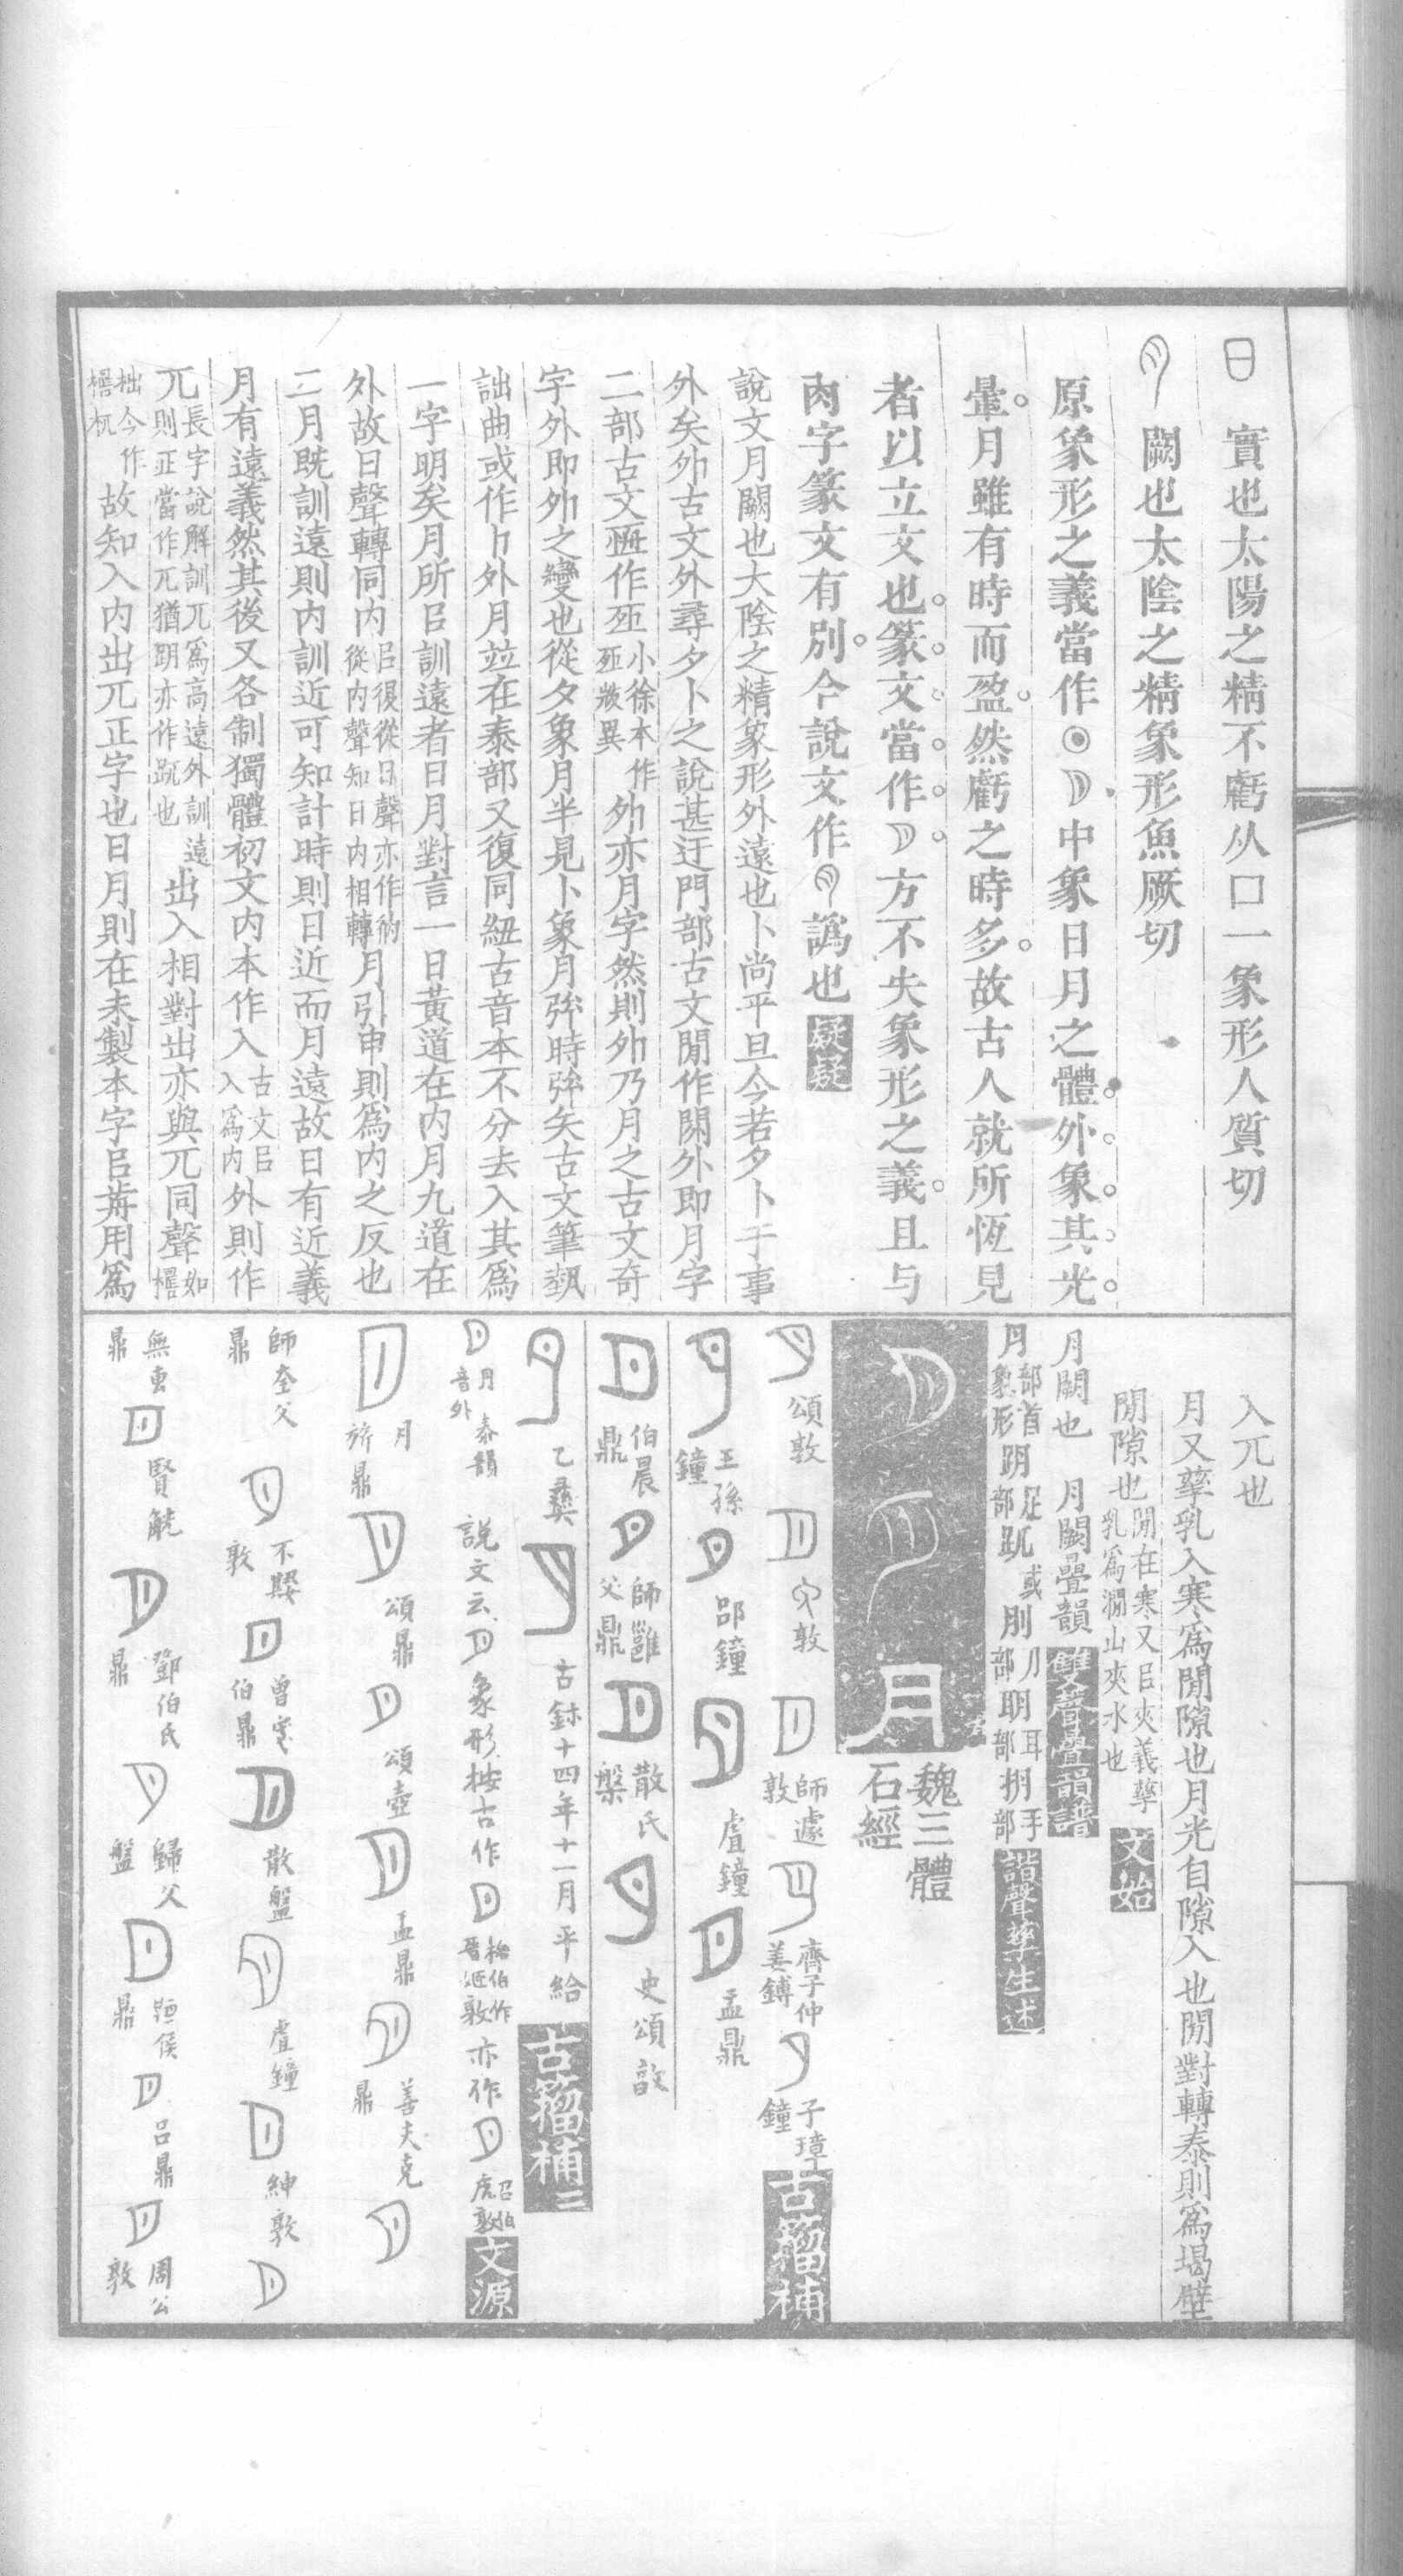 日 實也太陽之精不虧从口一象形人質切
月 闕也太陰之精象形魚厥切
原象形之義當作☉☽中象日月之體。外。象。其。光。
暈。月雖有時而盈。然虧之時多。故古人就所恆見
者以立文也。篆。文。當。作。☽。方不失象形之義。且与
肉字篆文有別。仐說文作月譌也 疑疑
說文月闕也大陰之精象形外遠也卜尚平旦今若夕卜于事
外矣外古文外尋夕卜之說甚迂門部古文閒作𨳢外即月字
二部古文𠄨作𠄨小徐本作
外亦月字然則外乃月之古文奇
字外即外之變也從夕象月半見卜象月弦時弦矢古文筆埶
詘曲或作卜外月竝在泰部又復同紐古音本不分去入其爲
一字明矣月所㠯訓遠者日月對言一日黃道在内月九道在
外故日聲轉同内㠯復從日聲亦作𢓇從内聲知日内相轉月引申則爲内之反也
二月既訓遠則内訓近可知計時則日近而月遠故日有近義
月有遠義然其後又各制獨體初文内本作入古文㠯入爲内外則作
兀長字說解訓兀爲高遠外訓遠則正當作兀猶跀亦作䟿也出入相對出亦與兀同聲如檮
柮今作檮杌故知入内出兀正字也日月則在未製本字㠯前用爲
入兀也
月又孳乳入寒爲閒隙也月光自隙入也閒對轉泰則爲堨壁
閒隙也閒在寒又㠯夾義孳乳爲澗山夾水也 文始
月闕也 月闕疊韻 雙聲疊韻譜
月部首象形跀足部䟿或刖刀部明耳部抈手部 諧聲孳生述
月 魏三體石經
頌敦 敦 師遽敦 齊子仲姜鎛 子璋鐘 古籀補
王孫鐘 郘鐘 虘鐘 盂鼎
伯晨鼎 師雝父鼎 散氏槃 史頌敦
乙彝 古鉢十四年十一月平給 古籀補二
月 月音外 泰韻 說文云月象形按古作月 晉姬敦亦作月 召伯虎敦 文源
月 旂鼎 頌鼎 頌壺 盂鼎 善夫克鼎
師奎父鼎 不𡢁敦 曾伯鼎 散盤 虘鐘 紳敦
無叀鼎 賢觥 鄧伯氏鼎 歸父盤 侯鼎 呂鼎 周公敦